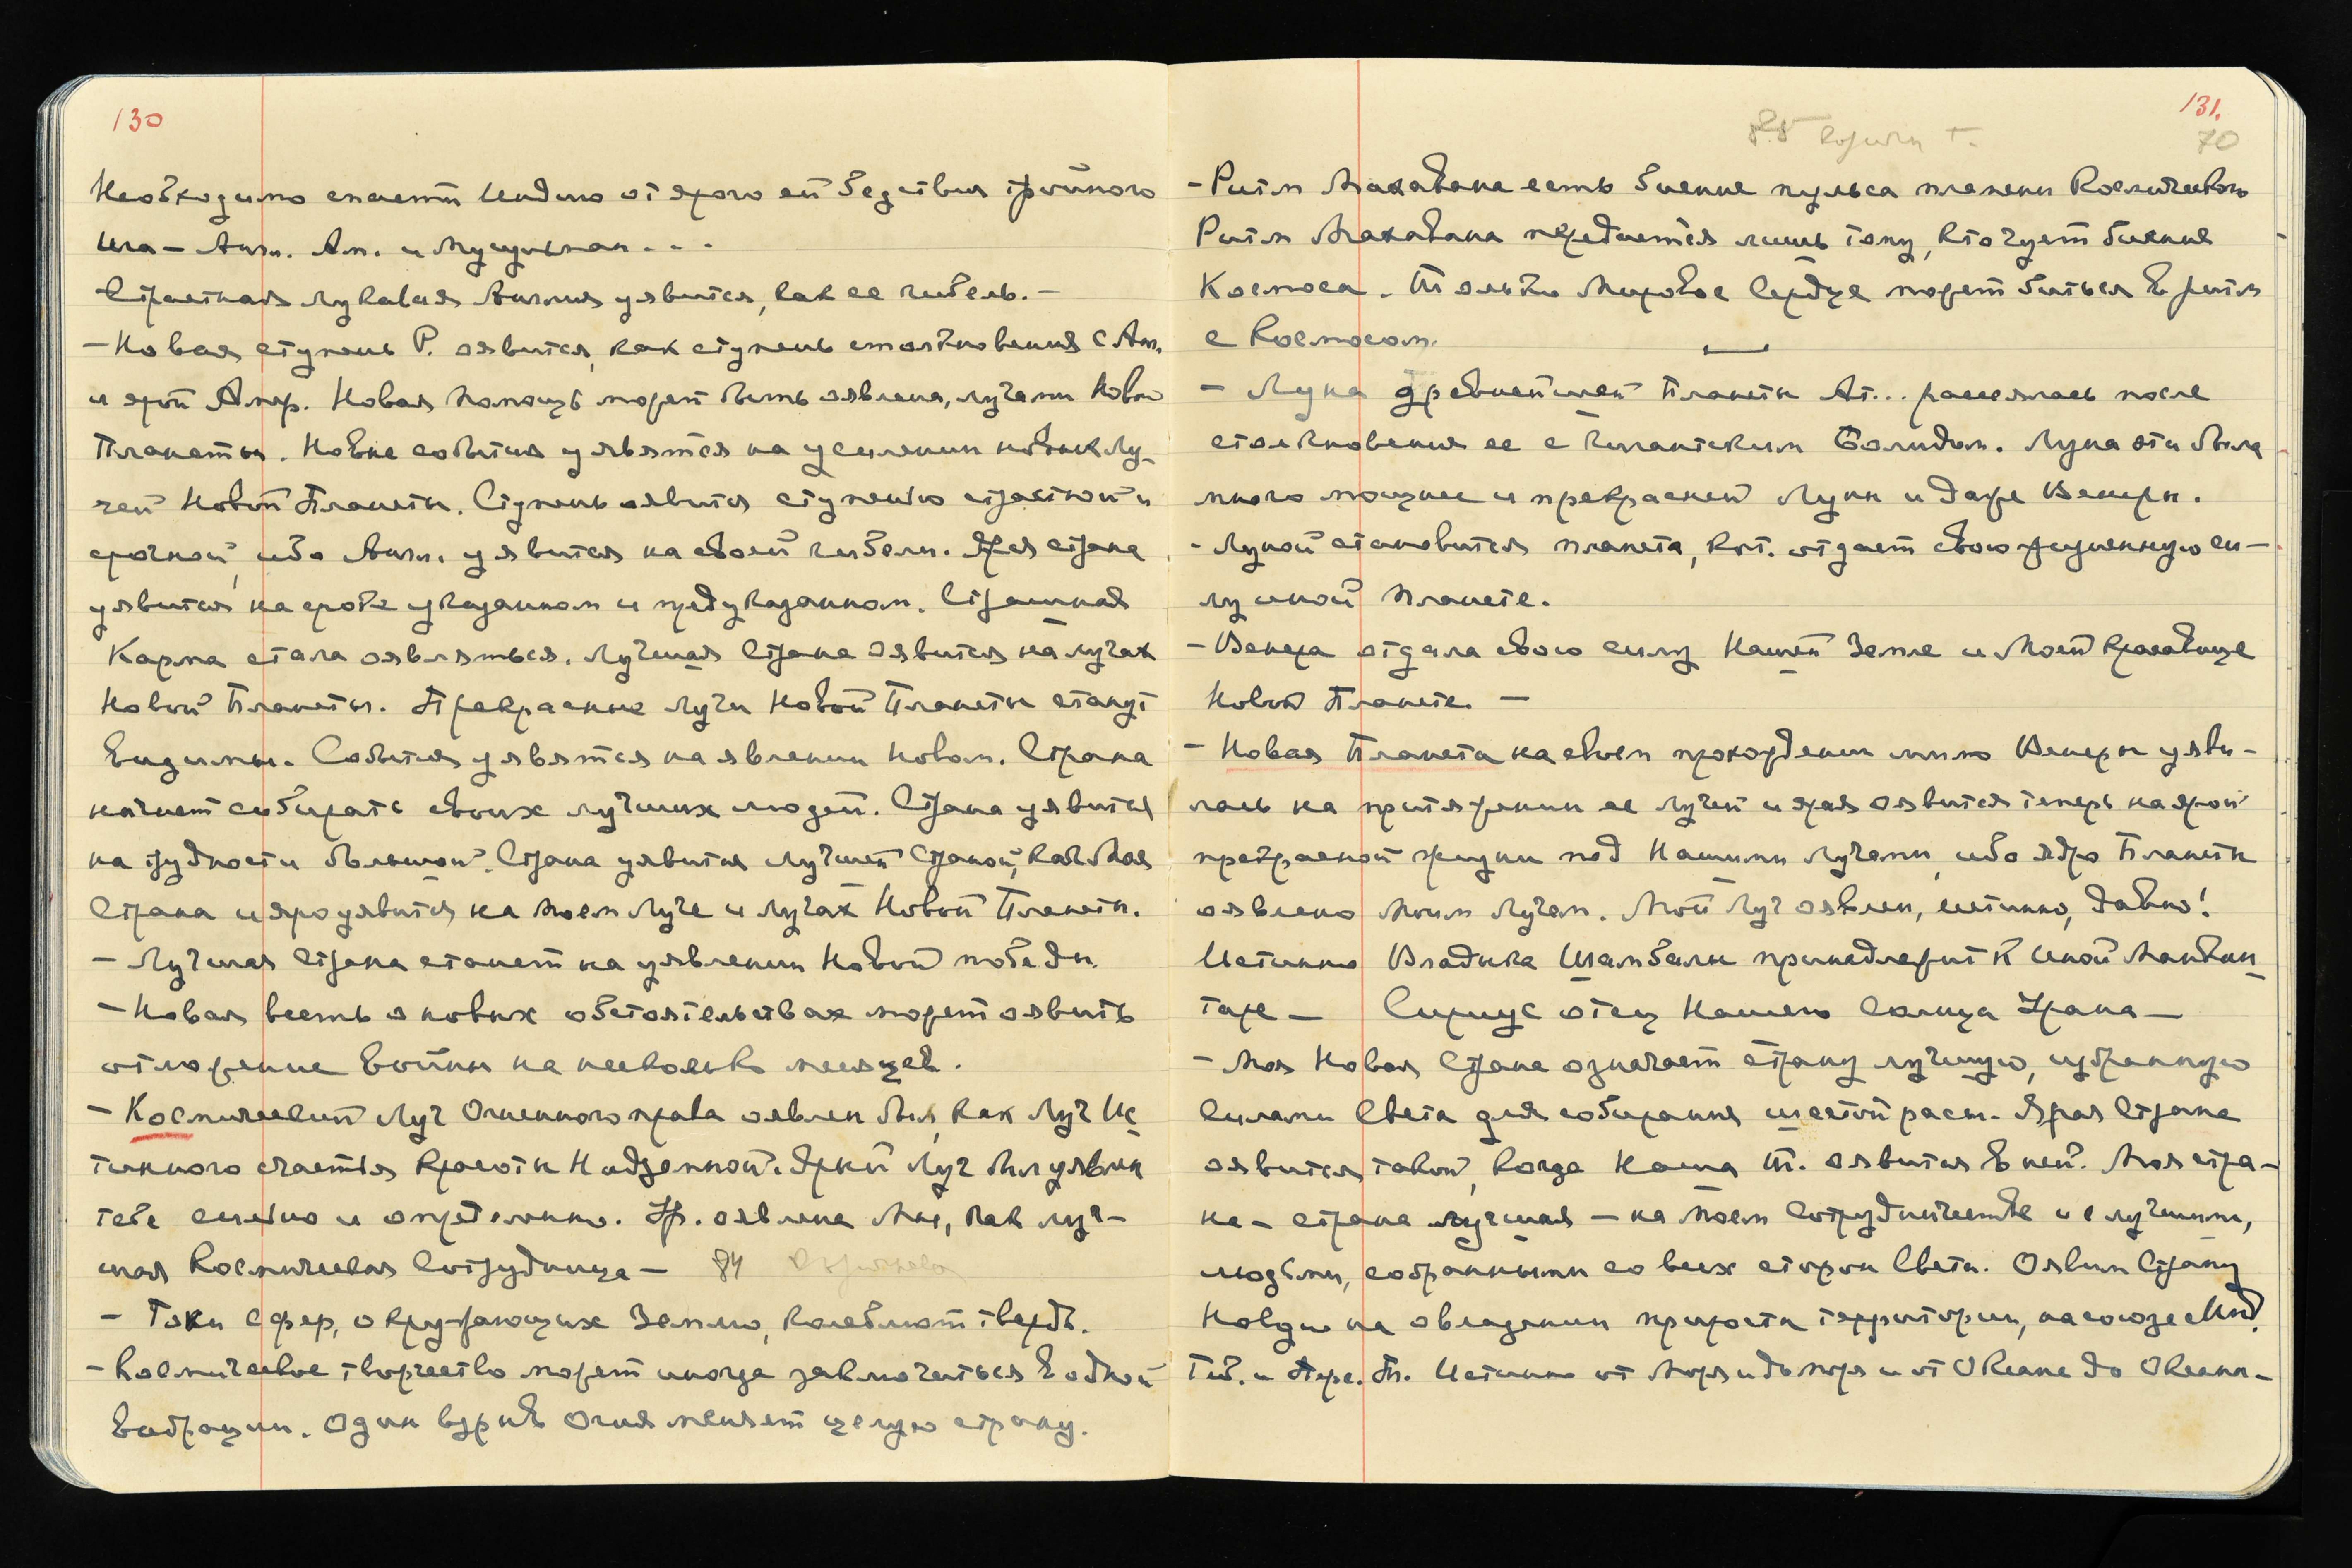 130
Необходимо спасти Индию от ярого ей бедствия тройного
ига – Англ. Ам. и Мусульман...
Страстная лукавая Англия уявится, как ее гибель. –
– Новая ступень Р. оявится, как ступень столкновения с Анг.
и ярой Амер. Новая помощь может быть оявлена, лучами Новой
Планеты. Новые события уявятся на усилении новых Лу-
чей Новой Планеты. Ступень оявится ступенью страстной и
срочной, ибо Англ. уявится на своей гибели. Ярая страна
уявится на сроке указанном и предуказанном. Страшная
Карма стала оявляться. Лучшая Страна оявится на лучах
Новой Планеты. Прекрасные Лучи Новой Планеты станут
видимы. События уявятся на явлении новом. Страна
начнет собирать своих лучших людей. Страна уявится
на трудности большой. Страна уявится лучшей Страной, как Моя
Страна и яро уявится на Моем Луче и лучах Новой Планеты.
– Лучшая Страна станет на уявлении Новой победы.
– Новая весть о новых обстоятельствах может оявить
отложение войны на несколько месяцев.
– Космический Луч Огненного права оявлен был, как Луч Ис
тинного счастья Красоты Надземной. Яркий Луч был уявлен
тебе сильно и определенно. Ур. оявлена Мне, как луч-
шая Космическая Сотрудница – 84
– Токи Сфер, окружающих Землю, колеблют твердь.
– Космическое творчество может иногда заключаться в одной
вибрации. Один взрыв Огня меняет целую страну.
131.
70
85
– Ритм Махавана есть биение пульса пламени Космического
Ритм Махавана передается лишь тому, кто чует биения
Космоса. Только Мировое Сердце может биться в ритм
с Космосом.
– Луна древнейшей Планеты Ат... рассеялась после
столкновения ее с гигантским Болидом. Луна эта была
много мощнее и прекрасней Луны и даже Венеры.
– Луной становится планета, кот. отдает свою жизненную си-
лу иной Планете.
– Венера отдала свою силу Нашей Земле и Моей красавице
Новой Планете. –
– Новая Планета на своем прохождении мимо Венеры уяви-
лась на притяжении ее Лучей и ярая оявится теперь на ярой
прекрасной жизни под Нашими Лучами, ибо ядро Планеты
оявлено Моим Лучем. Мой Луч оявлен, истинно, давно!
Истинно Владыка Шамбалы принадлежит к иной Манван
таре – Сириус отец Нашего Солнца Урана –
– Моя Новая Страна означает страну лучшую, избранную
Силами Света для собирания шестой расы. Ярая Страна
оявится такой, когда Наша Т. оявится в ней. Моя стра-
на – страна лучшая – на Моем Сотрудничестве и с лучшими,
людьми, собранными со всех сторон Света. Оявим Страну
Новую на овладении прироста территории, на союзе с Инд.
Тиб. и Истинно от Моря и до моря и от Океана до Океана –